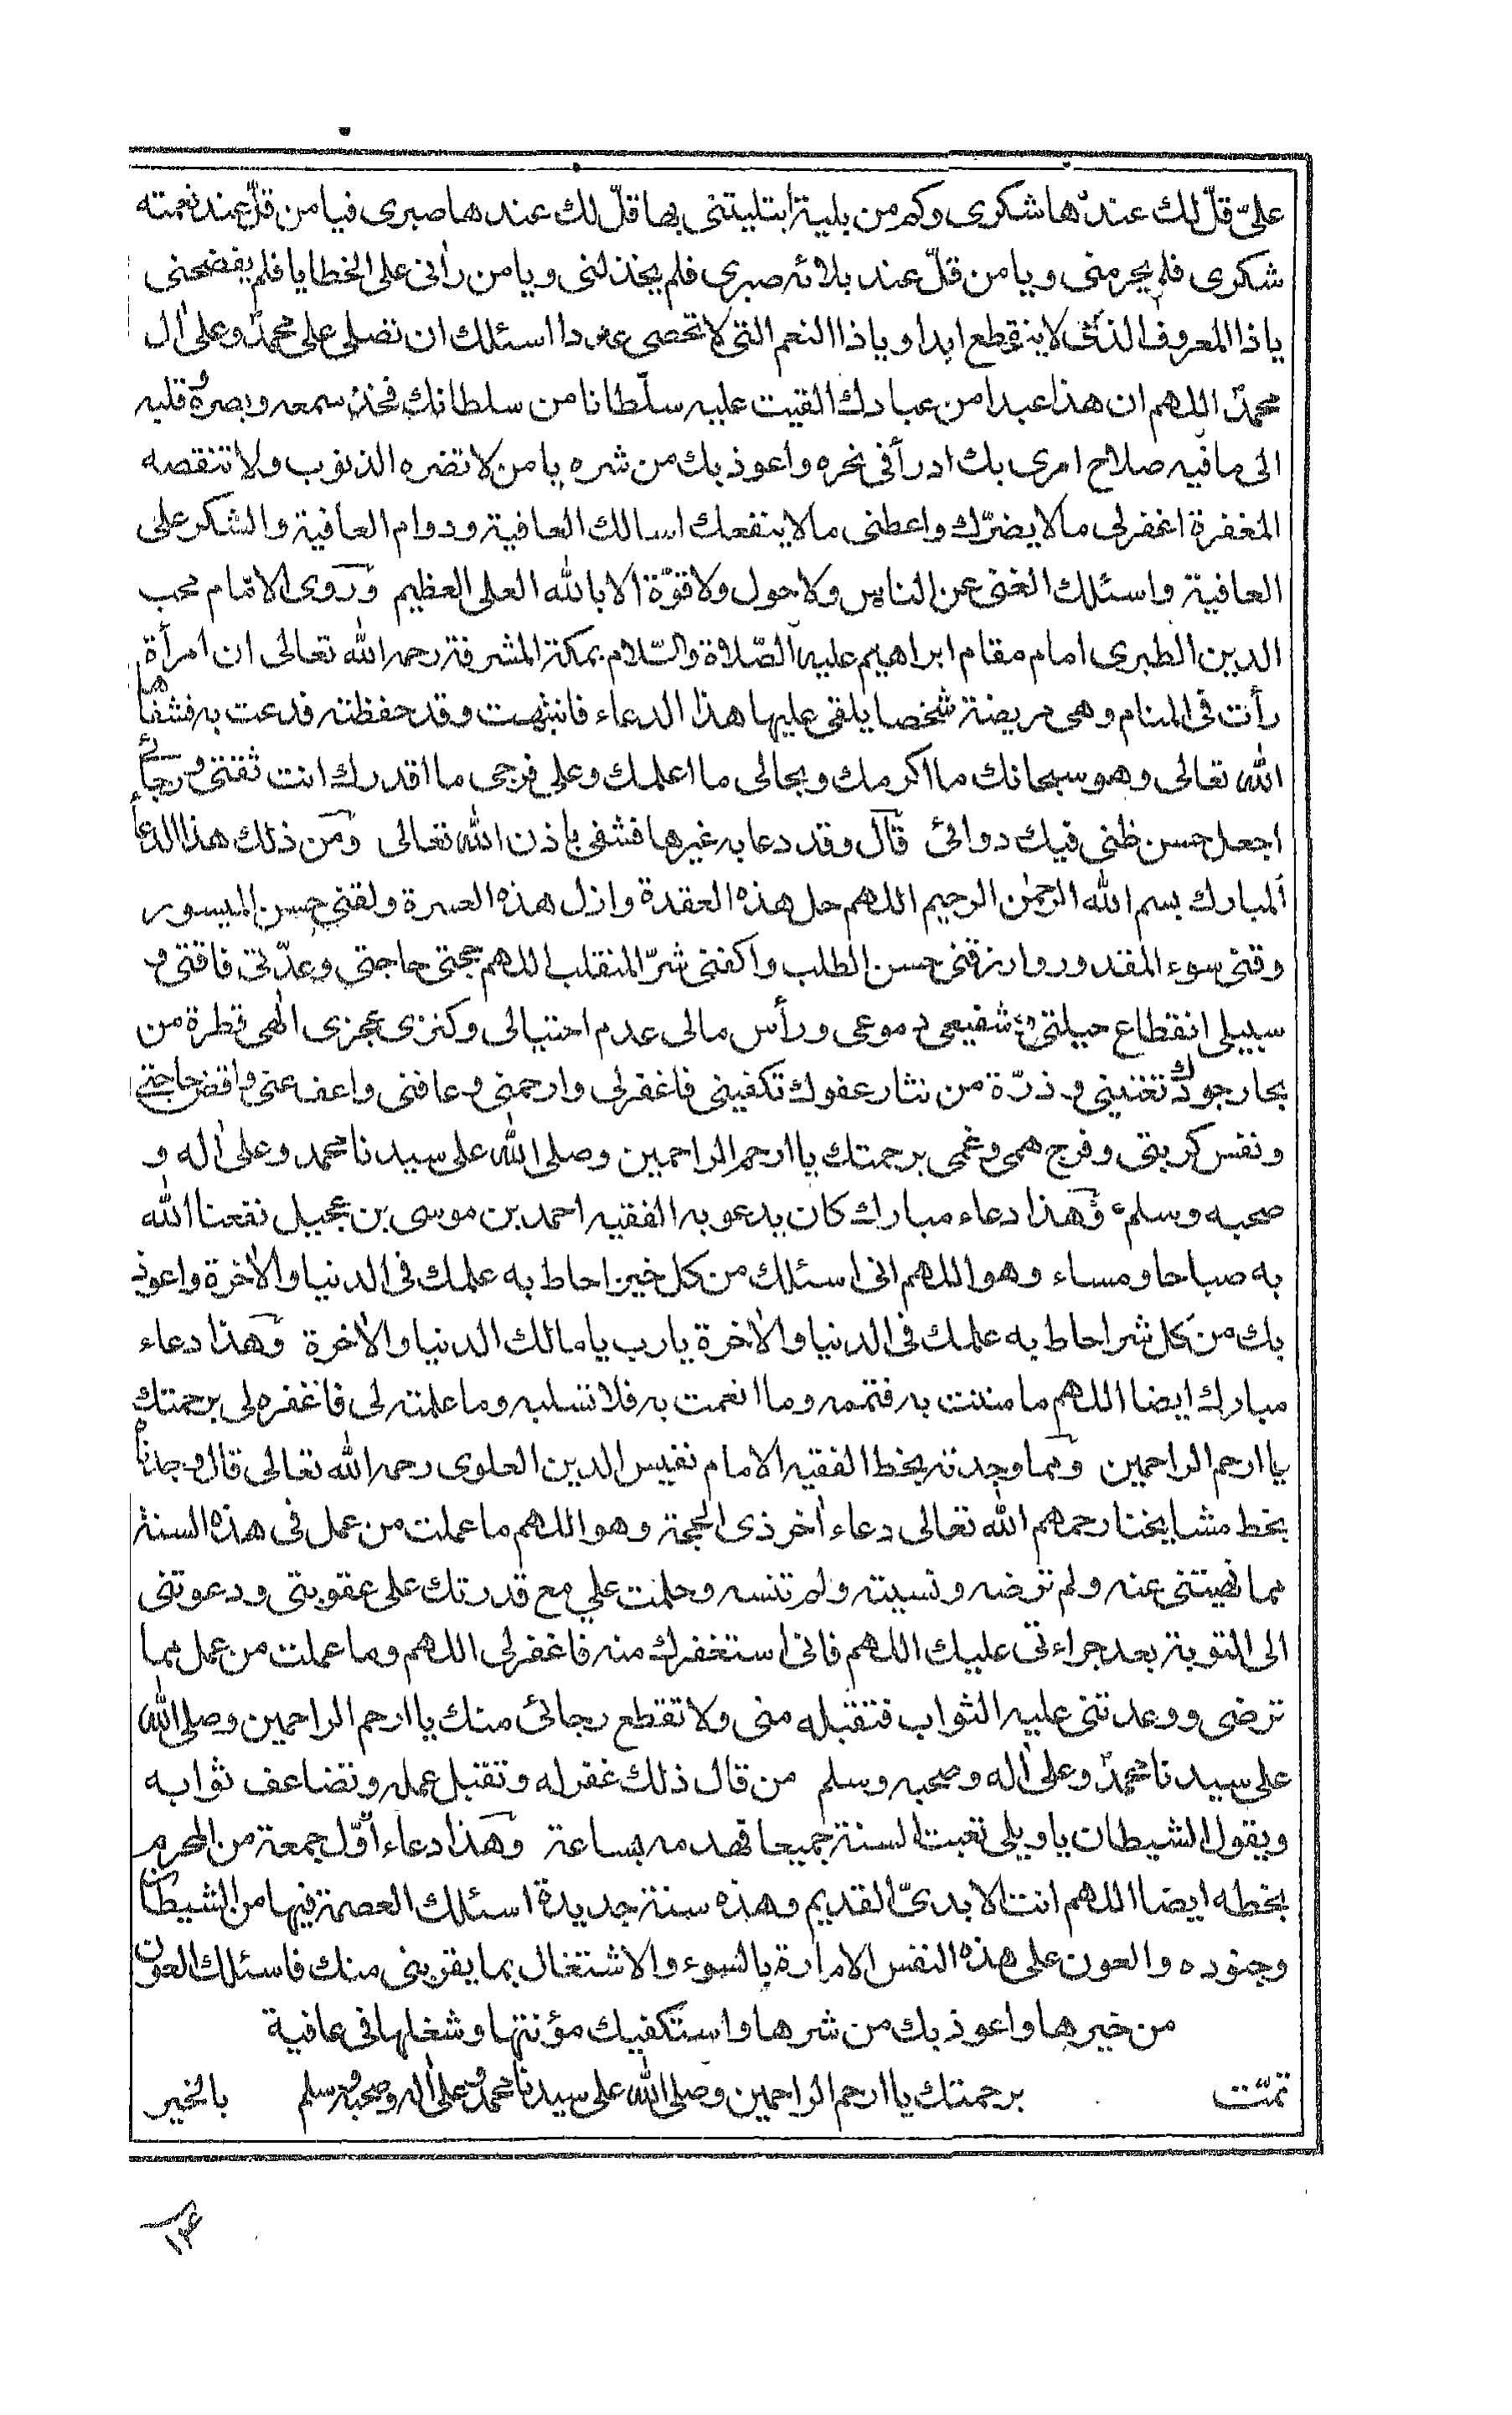 علىّ قلّ لك عندها شكرى وكم من بلية ابتليتنى بها قلّ لك عندها صبرى فيا من قلّ عند نعمته
شكرى فلم يحرمنى ويا من قلّ عند بلائه صبرى فلم يخذلنى ويا من رأنى على الخطايا فلم يفضحنى
يا ذا المعروف الذى لا ينقطع ابدا ويا ذا النعم التى لا تحصى عددا اسئلك ان تصلى على محمد وعلى أل
محمد اللهم ان هذا عبدا من عبادك القيت عليه سلطانا من سلطانك فخذ سمعه وبصره وقلبه
الى ما فيه صلاح امرى بك ادرأ فى نحره واعوذ بك من شره يا من لا تضره الذنوب ولا تنقصه
المغفرة اغفر لى ما لا يضرّك واعطنى ما لا ينفعك اسالك العافية ودوام العافية والشكر على
العافية واسئلك الغنى عن الناس ولا حول ولا قوّة الا بالله العلى العظيم وروى الامام محب
الدين الطبرى امام مقام ابراهيم عليه الصّلاة والسّلام بمكة المشرفة رحمه الله تعالى ان امرأة
رأت فى المنام وهى مريضة شخصا يلقى عليها هذا الدعاء فانتبهت وقد حفظته فدعت به فشفاها
الله تعالى وهو سبحانك ما اكرمك وبحالى ما اعلمك وعلى فرجى ما اقدرك انت ثقتى ورجائى
اجعل حسن ظنى فيك دوائى قال وقد دعا به غيرها فشفى باذن الله تعالى ومن ذلك هذا الدعا
المبارك بسم الله الرحمن الرحيم اللهم حل هذه العقدة وازل هذه العسرة ولقنى حسن الميسور
وقنى سوء المقدور وارزقنى حسن الطلب واكفنى شرّ المنقلب اللهم حجتى حاجتى وعدّتى فاقتى و
سبيلى انقطاع حيلتى وشفيعى دموعى ورأس مالى عدم احتيالى وكنزى عجزى الهى قطرة من
بحار جودك تغنينى وذرّة من نثار عفوك تكفينى فاغفر لى وارحمنى وعافنى واعف عنى واقض حاجتى
ونفس كربتى وفرج همى وغمى برحمتك يا ارحم الراحمين وصلى الله على سيدنا محمد وعلى أله و
صحبه وسلم وهذا دعاء مبارك كان يدعو به الفقيه احمد بن موسى بن عجيل نفعنا الله
به صباحا ومساء وهو اللهم انى اسئلك من كل خير احاط به علمك فى الدنيا والأخرة واعوذ
بك من كل شر احاط به علمك فى الدنيا والأخرة يا رب يا مالك الدنيا والأخرة وهذا دعاء
مبارك ايضا اللهم ما مننت به فتممه وما انعمت به فلا تسلبه وما علمته لى فاغفره لى برحمتك
يا ارحم الراحمين ومما وجدته بخط الفقيه الامام نفيس الدين العلوى رحمه الله تعالى قال وجدنا
بخط مشايخنا رحمهم الله تعالى دعاء أخر ذى الحجة وهو اللهم ما عملت من عمل فى هذه السنة
مما نهيتنى عنه ولم ترضه ونسيته ولم تنسه وحلمت على مع قدرتك على عقوبتى ودعوتنى
الى التوبة بعد جراءتى عليك اللهم فانى استغفرك منه فاغفر لى اللهم وما عملت من عمل مما
ترضى ووعدتنى عليه الثواب فتقبله منى ولا تقطع رجائى منك يا ارحم الراحمين وصلى الله
على سيدنا محمد وعلى أله وصحبه وسلم من قال ذلك غفر له وتقبل عمله وتضاعف ثوابه
ويقول الشيطان يا ويلى تعبت السنة جميعا فهدمه بساعة وهذا دعاء اوّل جمعة من المحرم
بخطه ايضا اللهم انت الابدىّ القديم وهذه سنة جديدة اسئلك العصمة فيها من الشيطان
وجنوده والعون على هذه النفس الامارة بالسوء والاشتغال بما يقربنى منك فاسئلك العون
من خيرها واعوذ بك من شرها واستكفيك مؤنتها وشغلها فى عافية
تمّت برحمتك يا ارحم الراحمين وصلى الله على سيدنا محمد وعلى أله وصحبه وسلم بالخير